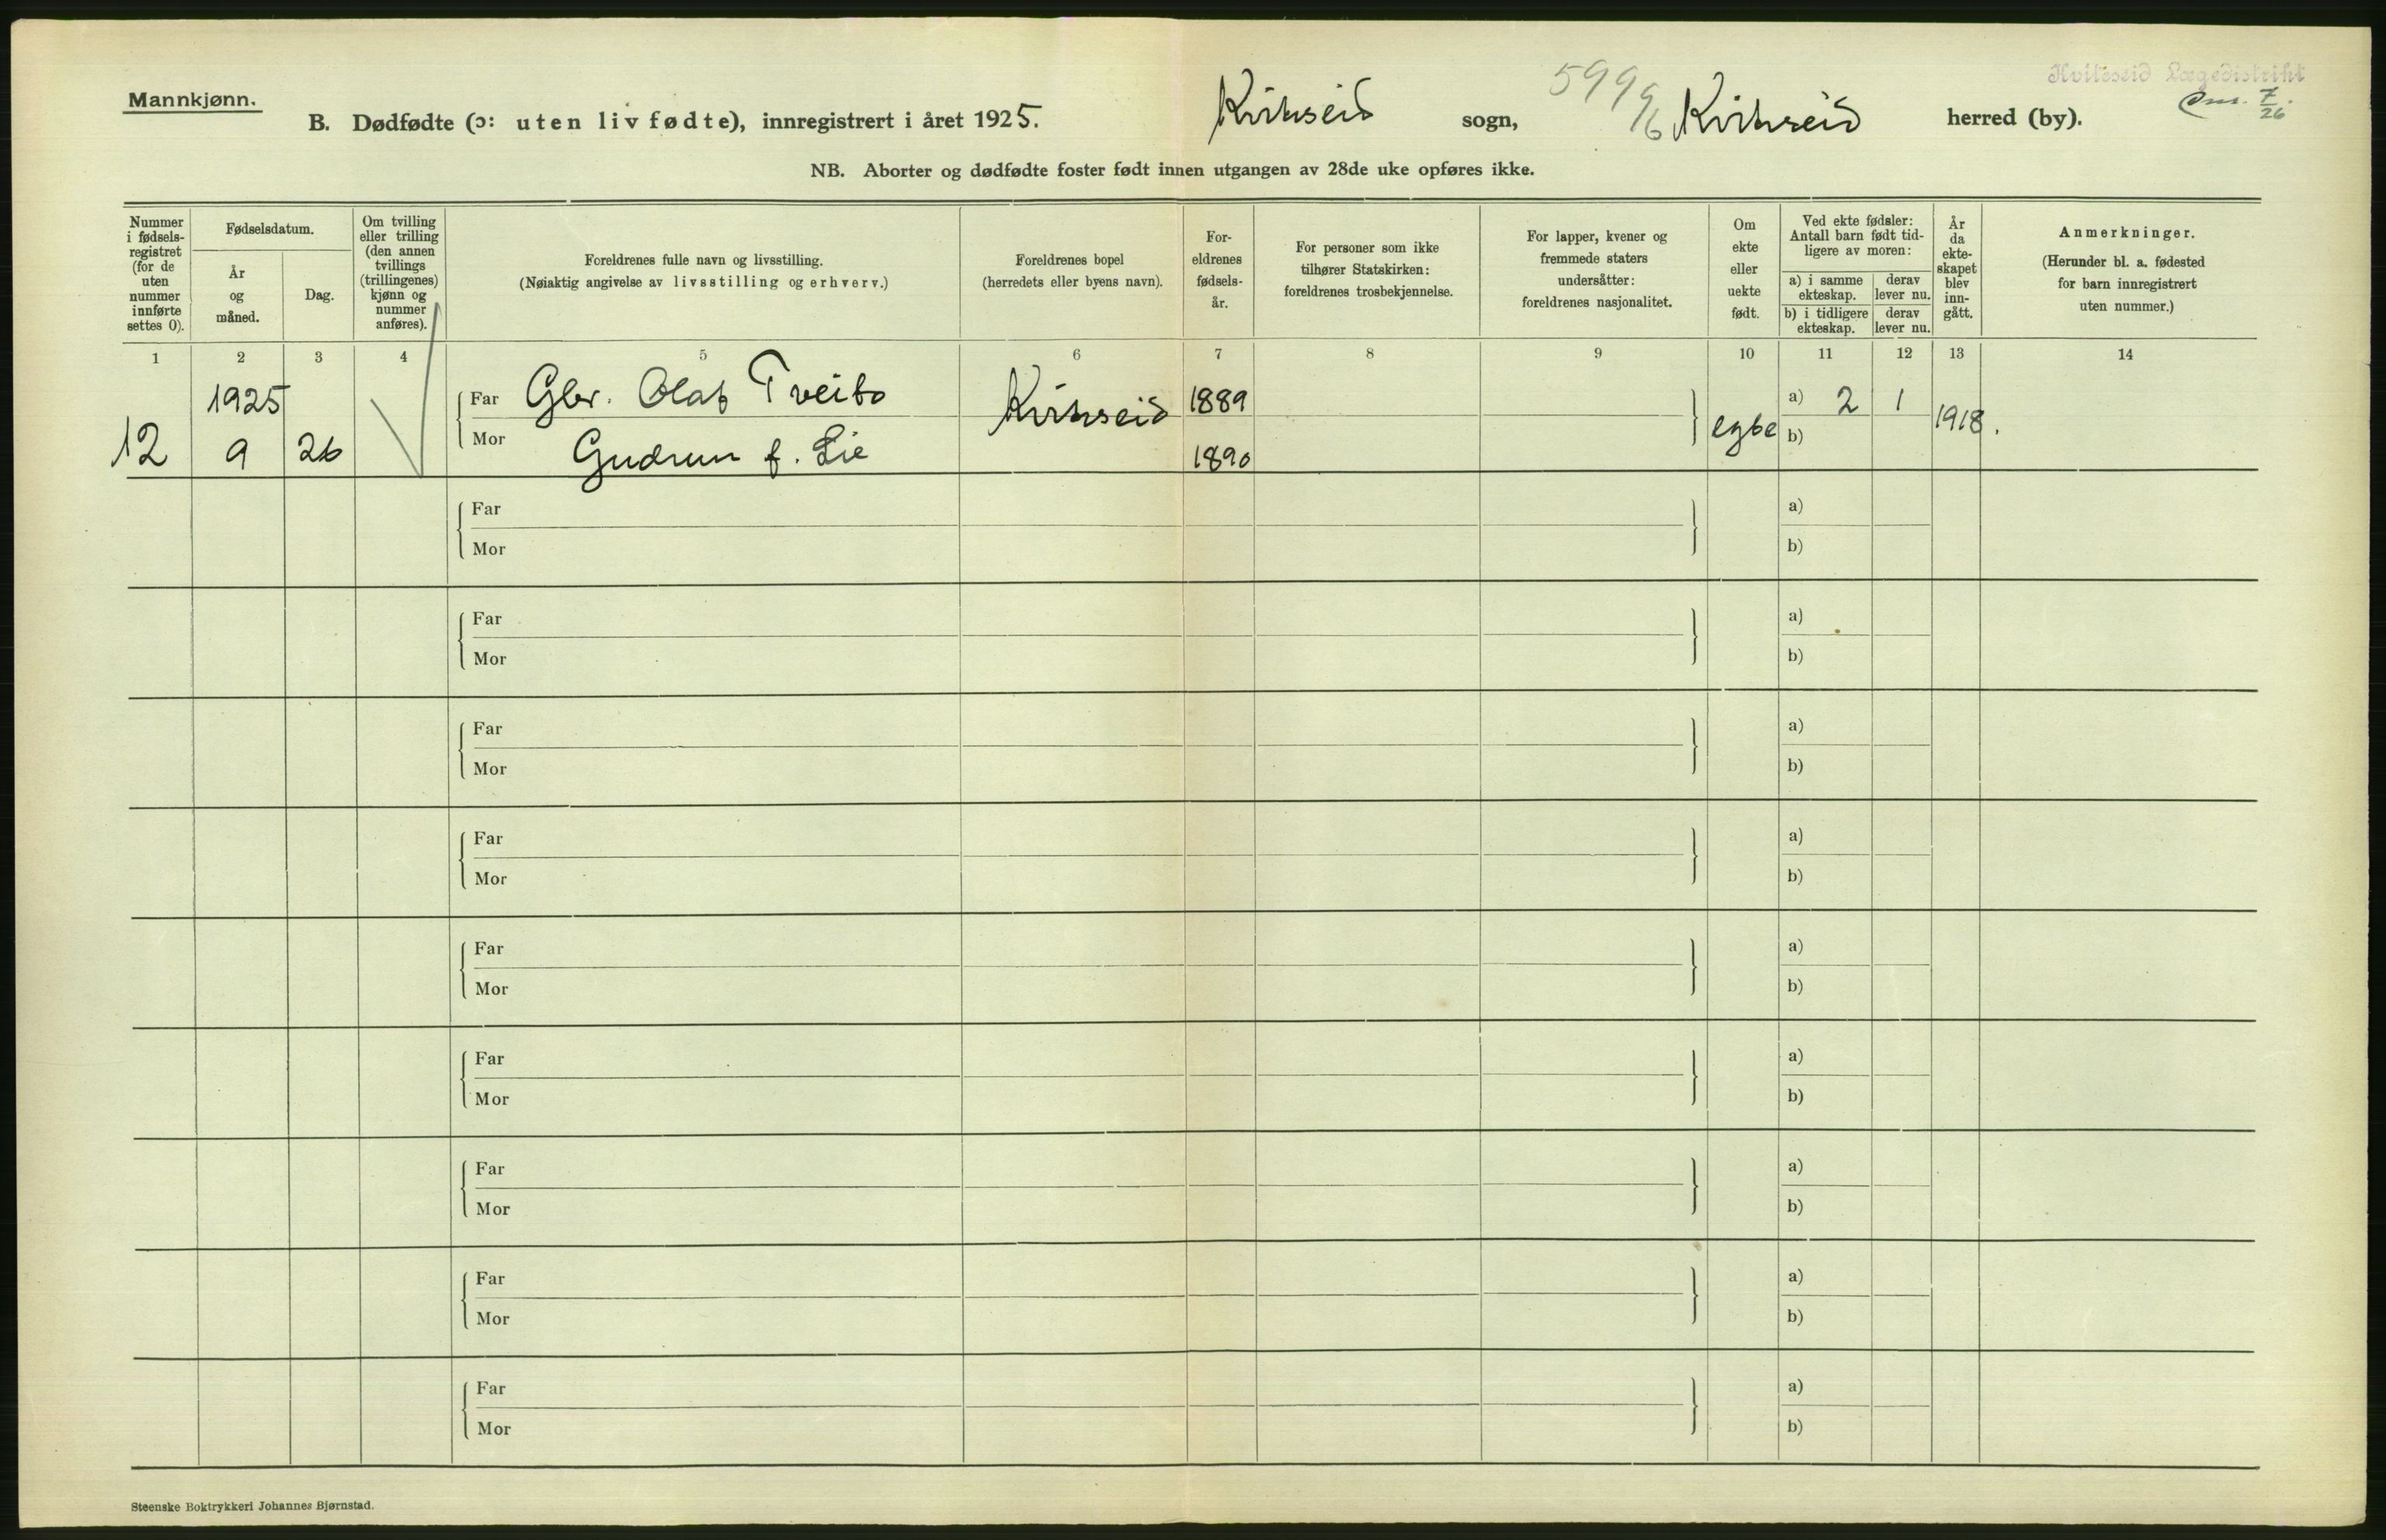 Mannkjønn.
Kviteseid Lægedistrikt
B. Dødfødte (ɔ: uten liv fødte), innregistrert i året 1925. Kviteseid sogn, Kviteseid herred (by).
599
9/6
7/26
NB. Aborter og dødfødte foster født innen utgangen av 28de uke opføres ikke.
Nummer
i fødsels-
registret
(for de
uten
nummer
innførte
settes 0).
Fødselsdatum.
År
og
måned.
Dag.
Om tvilling
eller trilling
(den annen
tvillings
(trillingenes)
kjønn og
nummer
anføres).
Foreldrenes fulle navn og livsstilling.
(Nøiaktig angivelse av livsstilling og erhverv.)
Foreldrenes bopel
(herredets eller byens navn).
For-
eldrenes
fødsels-
år.
For personer som ikke
tilhører Statskirken:
foreldrenes trosbekjennelse.
For lapper, kvener og
fremmede staters
undersåtter:
foreldrenes nasjonalitet.
Om
ekte
eller
uekte
født.
Ved ekte fødsler:
Antall barn født tid-
ligere av moren:
a) i samme
ekteskap.
derav
lever nu.
b) i tidligere
ekteskap.
derav
lever nu.
År
da
ekte-
skapet
blev
inn-
gått.
Anmerkninger.
(Herunder bl. a. fødested
for barn innregistrert
uten nummer.)
1 2 3 4 5 6 7 8 9 10 11 12 13 14
1925 Far Gbr. Olaf Tveito Kviteseid 1889 a) 2 1
12 9 26 Mor Gudrun f. Lie 1890 egte b) 1918.
Far a)
Mor b)
Far a)
Mor b)
Far a)
Mor b)
Far a)
Mor b)
Far a)
Mor b)
Far a)
Mor b)
Far a)
Mor b)
Far a)
Mor b)
Far a)
Mor b)
Steenske Boktrykkeri Johannes Bjørnstad.